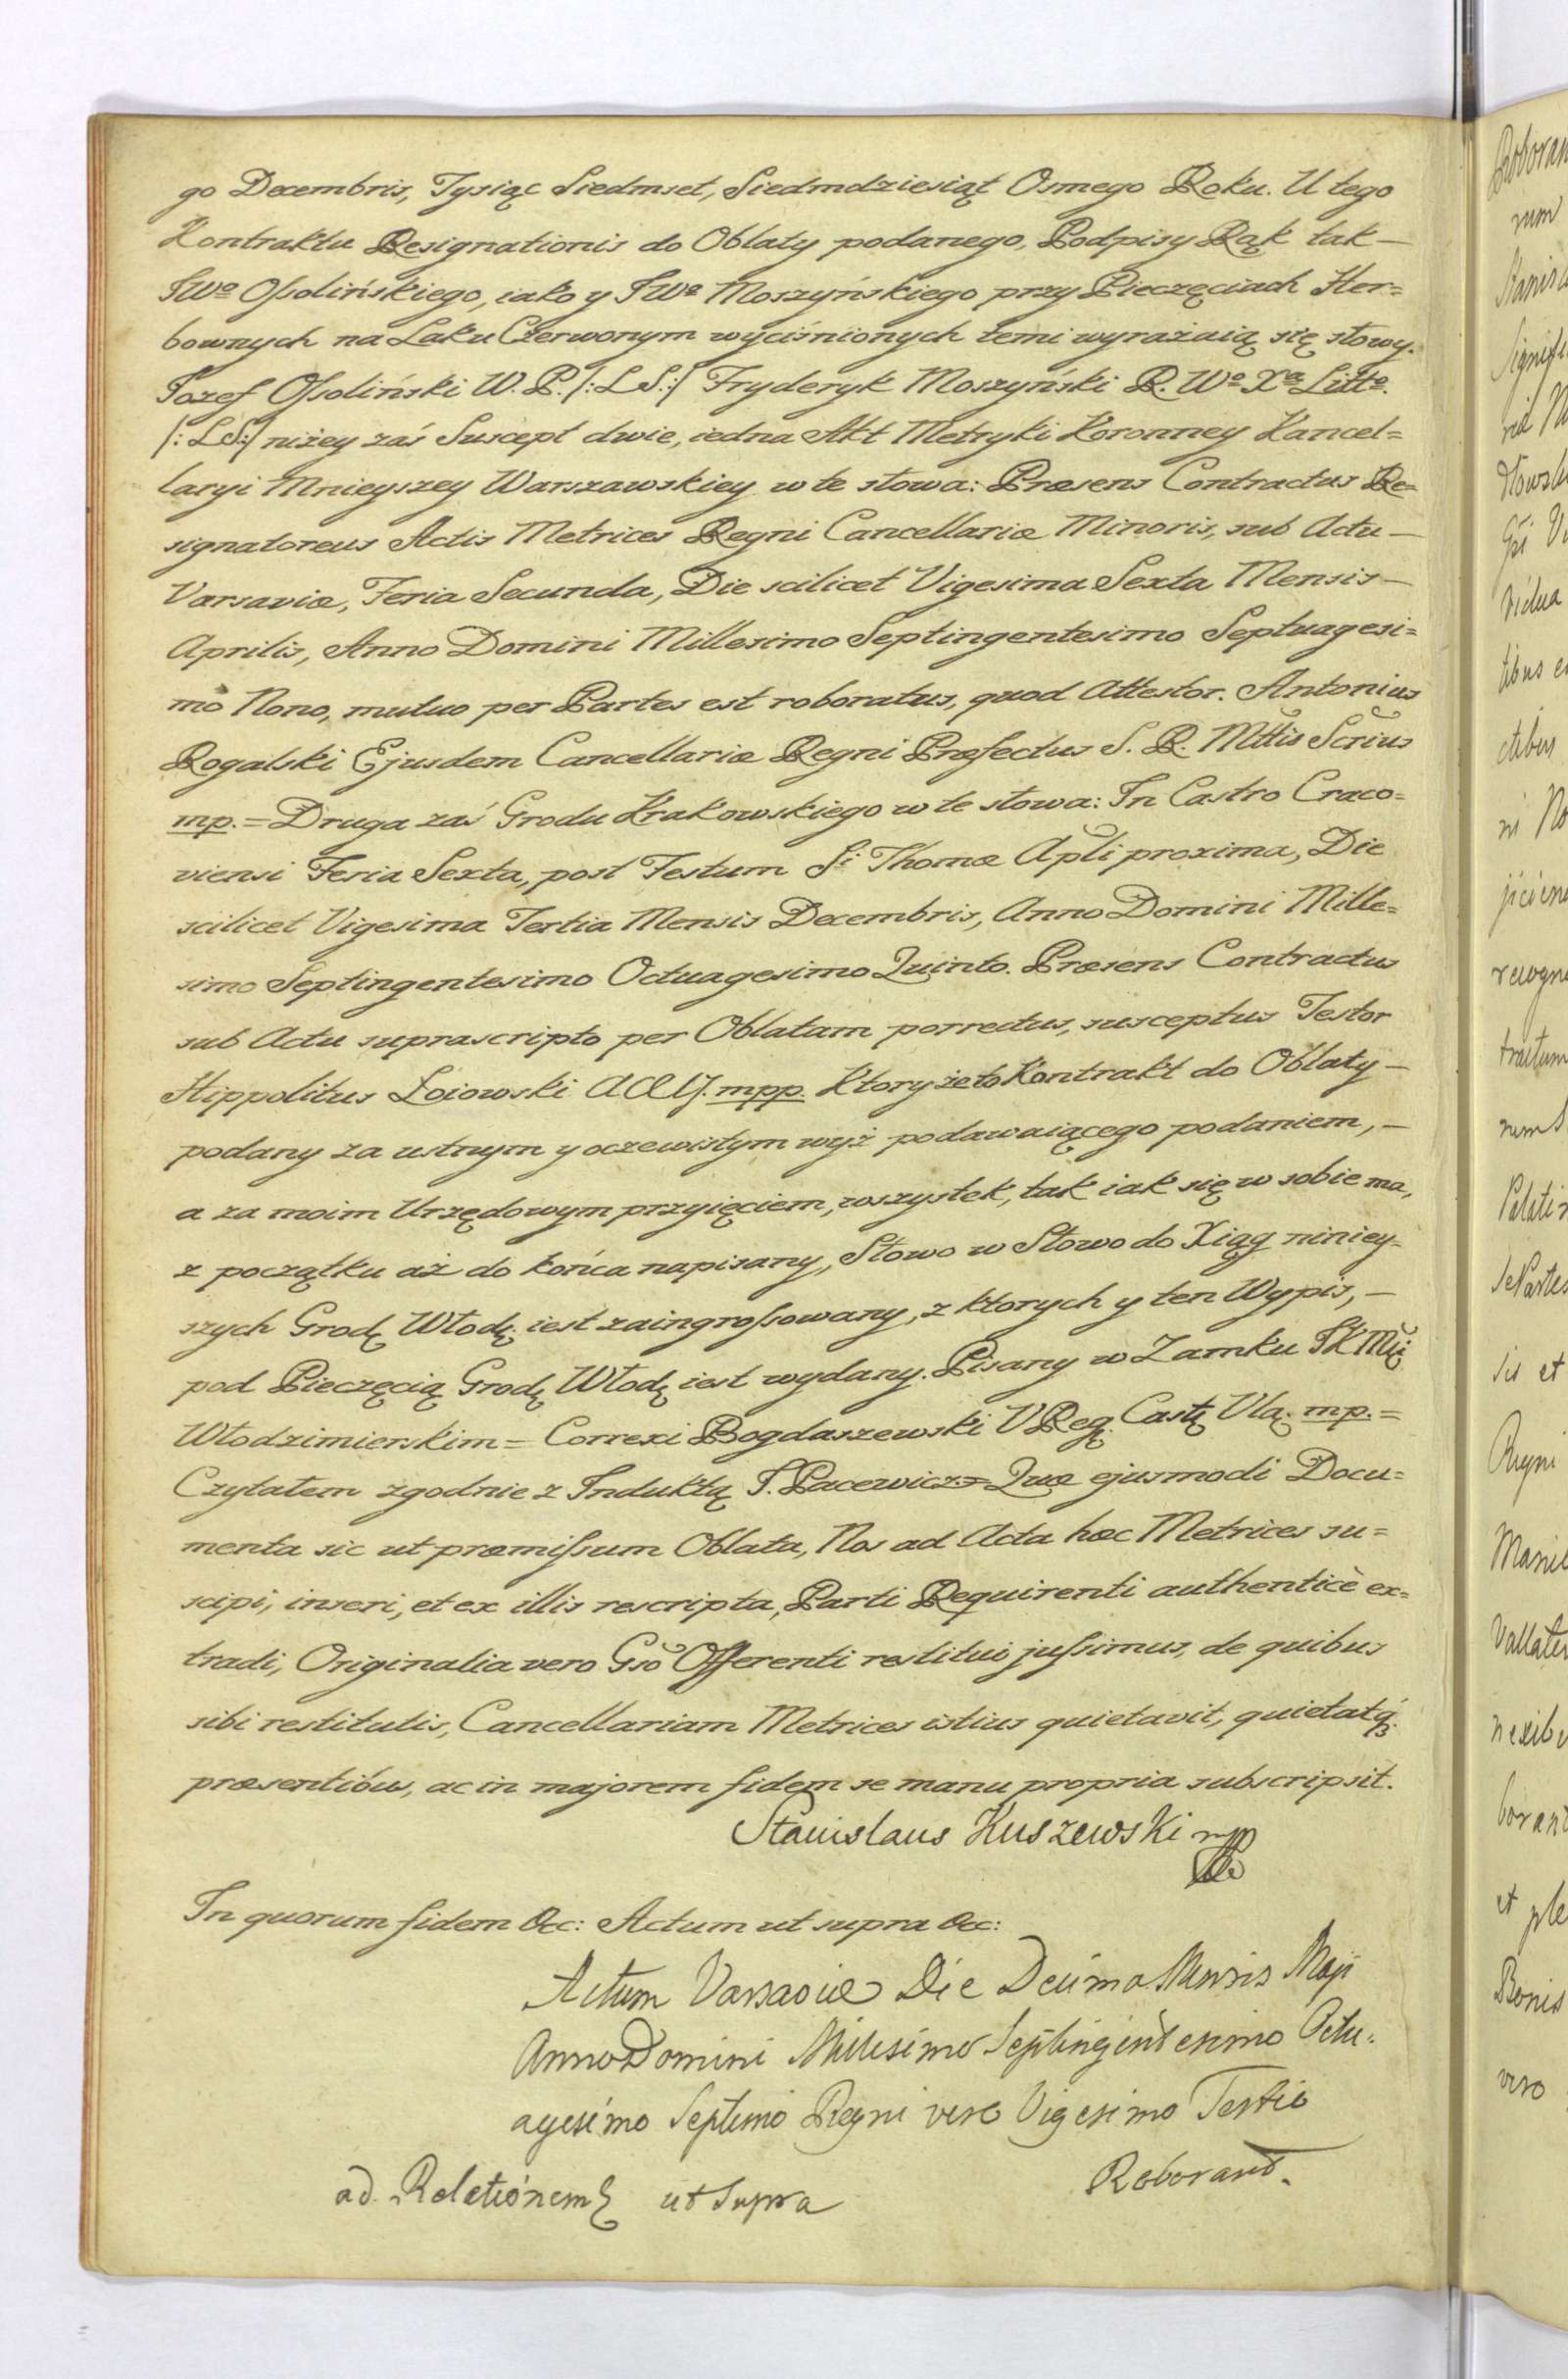 go Decembris, Tysiąc Siedmset, Siedmdziesiąt Osmego Roku. U tego
Kontraktu Resignationis do Oblaty podanego, Podpisy Rąk tak –
JWo Ossolińskiego, iako y JWo Moszyńskiego przy Pieczęciach Her=
bownych na Laku Czerwonym wyciśnionych temi wyrażaią się słowy.
Jozef Ossoliński W. P. /: L S :/ Fryderyk Moszyński R. Wo Xa Litto.
/: L S :/ niżey zaś Suscept dwie, iedna Akt Metryki Koronney Kancel=
laryi Mnieyszey Warszawskiey w te słowa: Præsens Contractus Re=
signatoreus Actis Metrices Regni Cancellariæ Minoris, sub Actu –
Varsaviæ, Feria Secunda, Die scilicet Vigesima Sexta Mensis –
Aprilis, Anno Domini Millesimo Septingentesimo Septuagesi=
mo Nono, mutuo per Partes est roboratus, quod Attestor. Antonius
Rogalski Ejusdem Cancellariæ Regni Præfectus S. R. Mttis Scrius
mp. = Druga zaś Grodu Krakowskiego w te słowa: In Castro Craco=
viensi Feria Sexta, post Festum Si Thomæ Apli proxima, Die
scilicet Vigesima Tertia Mensis Decembris, Anno Domini Mille=
simo Septingentesimo Octuagesimo Quinto. Præsens Contractus
sub Actu suprascripto per Oblatam porrectus, susceptus Testor
Hippolitus Łoiowski mpp. Ktory żeto Kontrakt do Oblaty –
podany za ustnym y oczewistym wyż podawaiącego podaniem, –
a za moim Urzędowym przyięciem, wszystek, tak iak się w sobie ma,
z początku aż do końca napisany, Słowo w Słowo do Xiąg niniey=
szych Grodę Włodę iest zaingrossowany, z ktorych y ten Wypis, –
pod Pieczęcią Grodę Włodę iest wydany. Pisany w Zamku JK Mci
Włodzimierskim = Correxi Bogdaszewski V Reg. Castę Vlą. mp. =
Czytałem zgodnie z Induktą J. Pacewicz = Quæ ejusmodi Docu=
menta sic ut præmissum Oblata, Nos ad Acta hæc Metrices su=
scipi, inseri, et ex illis rescripta, Parti Requirenti authenticè ex=
tradi, Originalia vero Gso Offerenti restitui jussimus, de quibus
sibi restitutis, Cancellariam Metrices istius quietavit, quietatq
præsentibus, ac in majorem fidem se manu propria subscripsit.
Stanislaus Kuszewski mp
In quorum fidem &c: Actum ut supra &c:
Actum Varsaviæ Die Decima Mensis Maji
Anno Domini Millesimo Septingentesimo Octu=
agesimo Septimo Regni vero Vigesimo Tertio
Roborand.
ad Relationem ut Supra